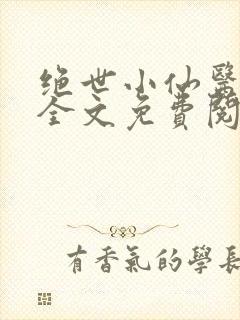 绝世小仙醫
全文免費閱
有香氣的學長